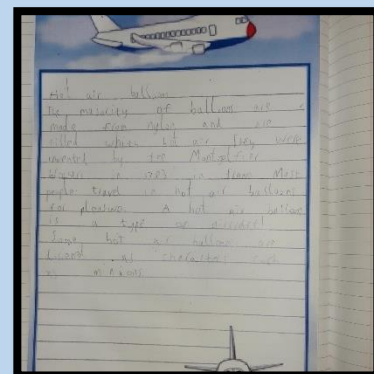 Hot air balloon
The majority of balloons are
made from nylon and are
filled whith hot air They were
invented by the Montgolfier
in in france Most
people travel in hot air balloons
for pleasure. A hot air balloon
is a type of aircraft.
Some hot air balloons are
as characters such
as minions